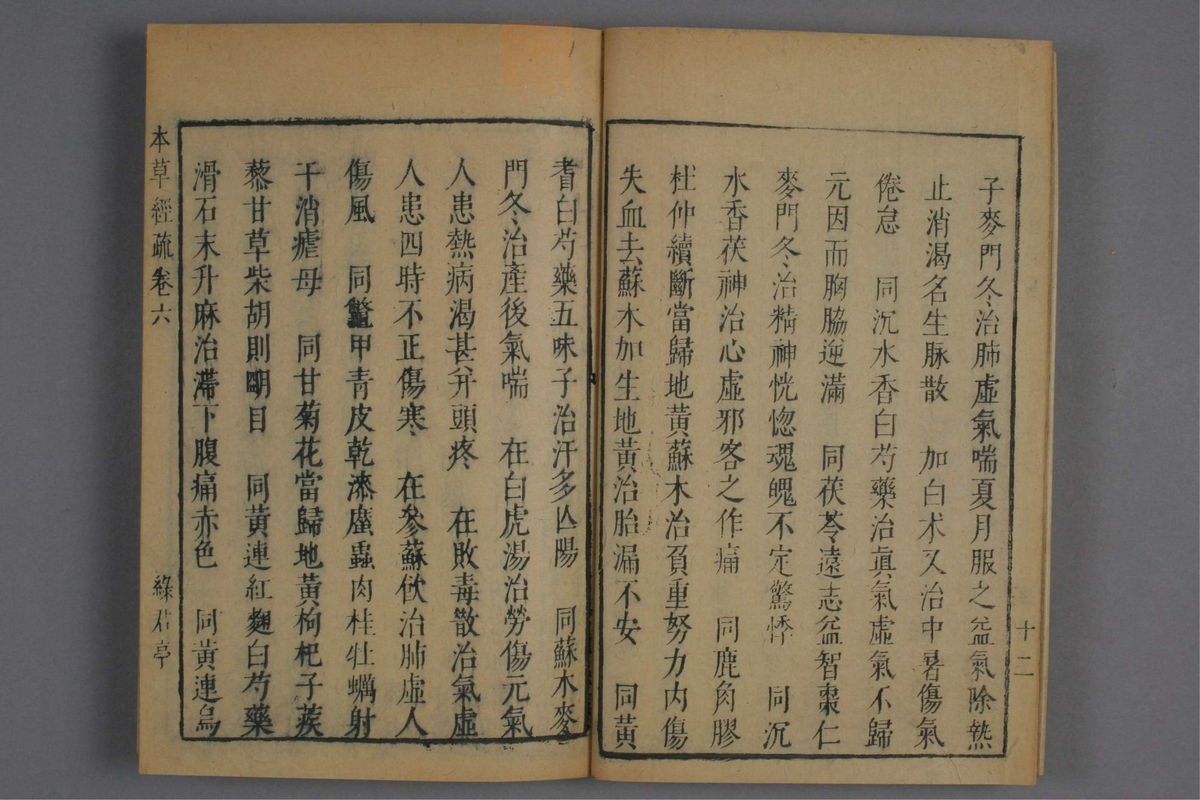 子麥門冬治肺虛氣喘夏月服之益氣除熱
止消渴名生脉散　加白术又治中暑傷氣
倦怠　同沉水香白芍藥治眞氣虛氣不歸
元因而胸脇逆滿　同茯苓遠志益智棗仁
麥門冬治精神恍惚魂魄不定驚悸　同沉
水香茯神治心虛邪客之作痛　同鹿角膠
杜仲續斷當歸地黃蘇木治負重努力內傷
失血去蘇木加生地黃治胎漏不安　同黃
十二
耆白芍藥五味子治汗多亾陽　同蘇木麥
門冬治產後氣喘　在白虎湯治勞傷元氣
人患熱病渴甚并頭疼　在敗毒散治氣虛
人患四時不正傷寒　在參蘇飲治肺虛人
傷風　同鱉甲青皮乾漆䗪蟲肉桂牡蠣射
干消瘧母　同甘菊花當歸地黃枸杞子蒺
藜甘草柴胡則明目　同黃連紅麯白芍藥
滑石末升麻治滯下腹痛赤色　同黃連烏
本草經疏卷六
綠君亭